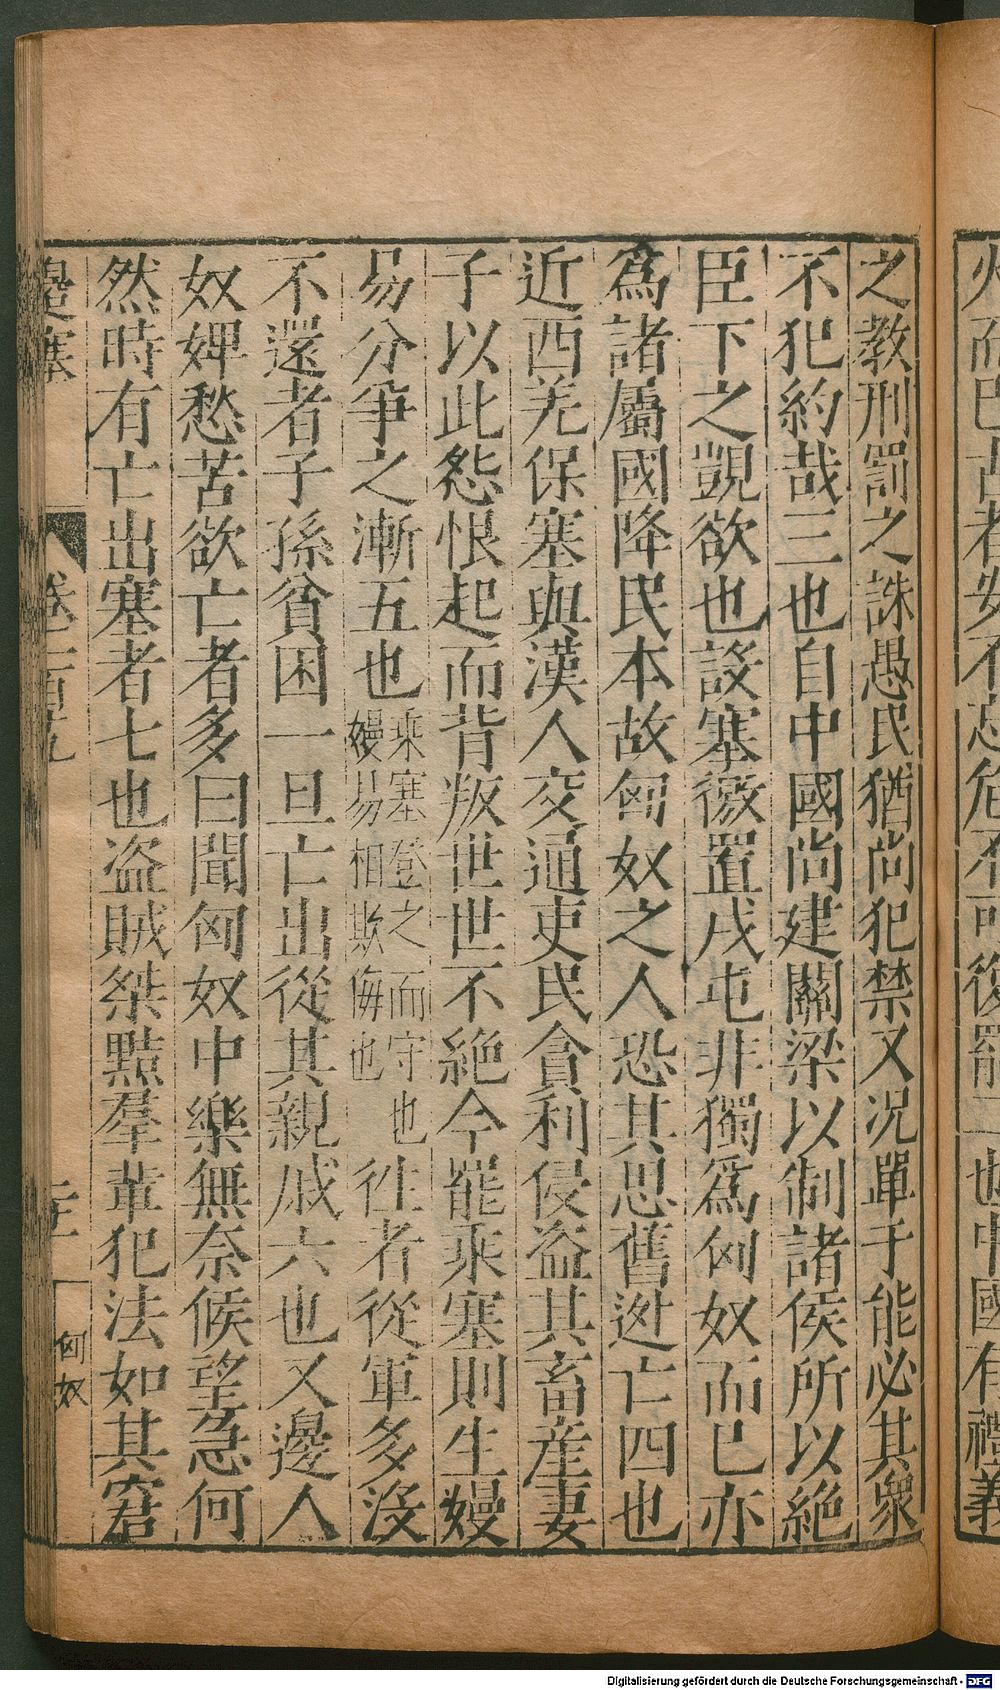 火而已古者安不忘危不可復罷二也中國有禮義
之教刑罰之誅愚民猶尚犯禁又况單于能必其衆
不犯約哉三也自中國尚建關梁以制諸侯所以絶
臣下之覬欲也設塞徼置戍屯非獨爲匈奴而已亦
爲諸屬國降民本故匈奴之人恐其思舊逃亡四也
近西羌保塞與漢人交通吏民貪利侵盗其畜産妻
子以此怨恨起而背叛世世不絶今罷乘塞則生嫚
易分爭之漸五也乘塞登之而守也嫚易相欺侮也往者從軍多沒
不還者子孫貧困一旦亡出從其親戚六也又邊人
奴婢愁苦欲亡者多曰聞匈奴中樂無奈候望急何
然時有亡出塞者七也盗賊桀黠羣輩犯法如其窘
邊塞 卷一百九 匈奴
Digitalisierung gefördert durch die Deutsche Forschungsgemeinschaft - DFG